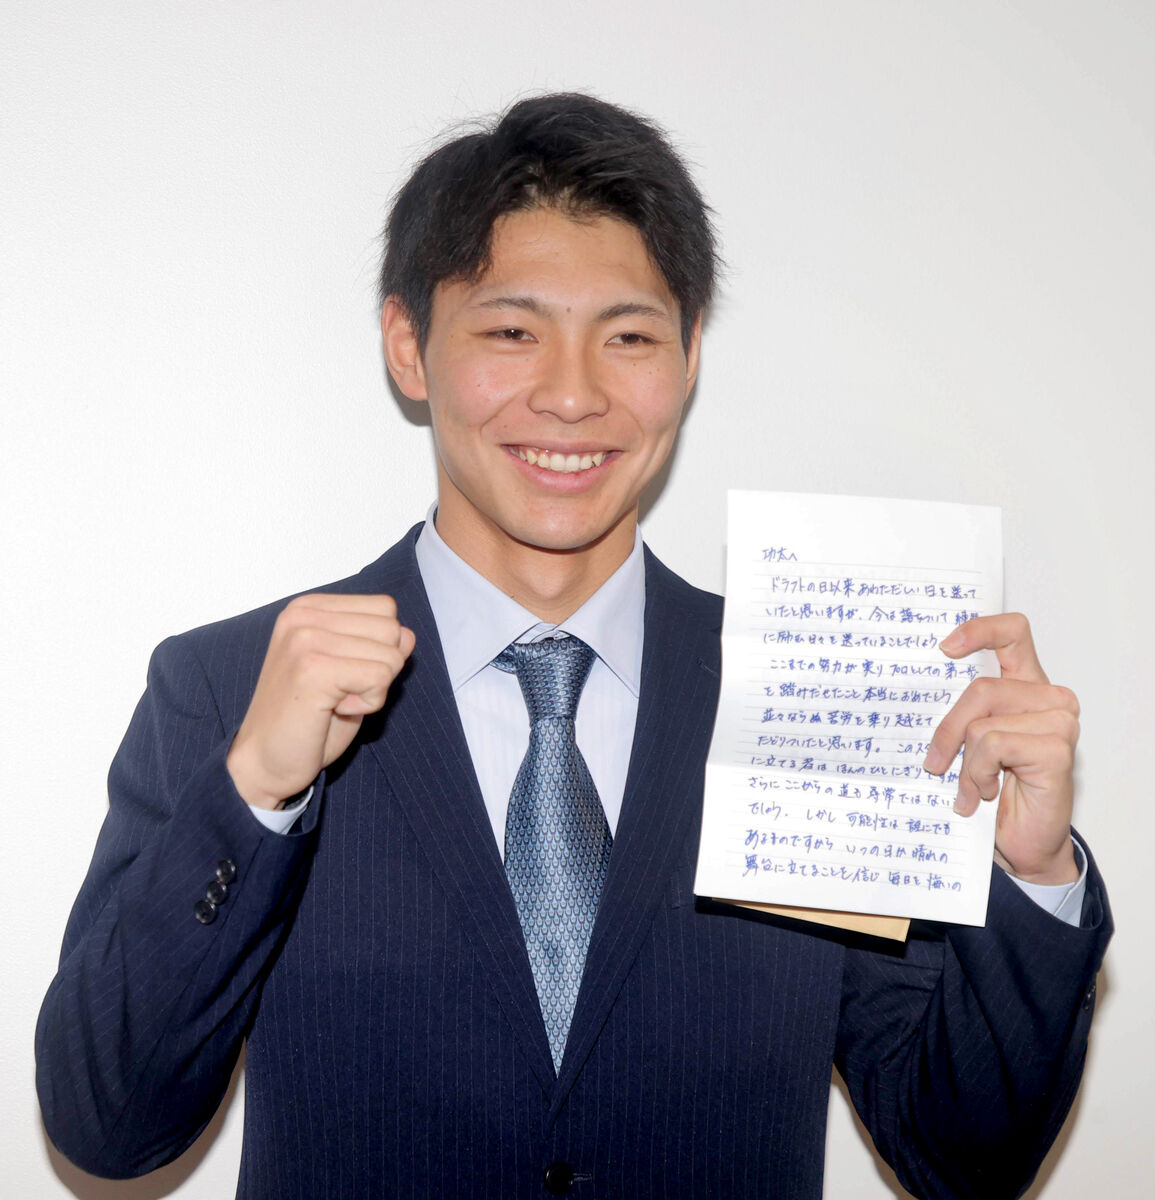 功太へ
ドラフトの日以来あわただしい日を送って
いたと思いますが、今は落ちついて
に励む日々を送っていることでしょう
ここまでの努力が実りプロとしての第一歩
を踏みだせたこと本当におめでとう
並々ならぬ苦労を乗り越えて
たどりついたと思います。このス
に立てる者はほんのひとにぎりですが
さらにここからの道も尋常ではない
でしょう。しかし可能性は誰にでも
あるものですから いつの日か晴れの
舞台に立てることを信じ 毎日を悔いの